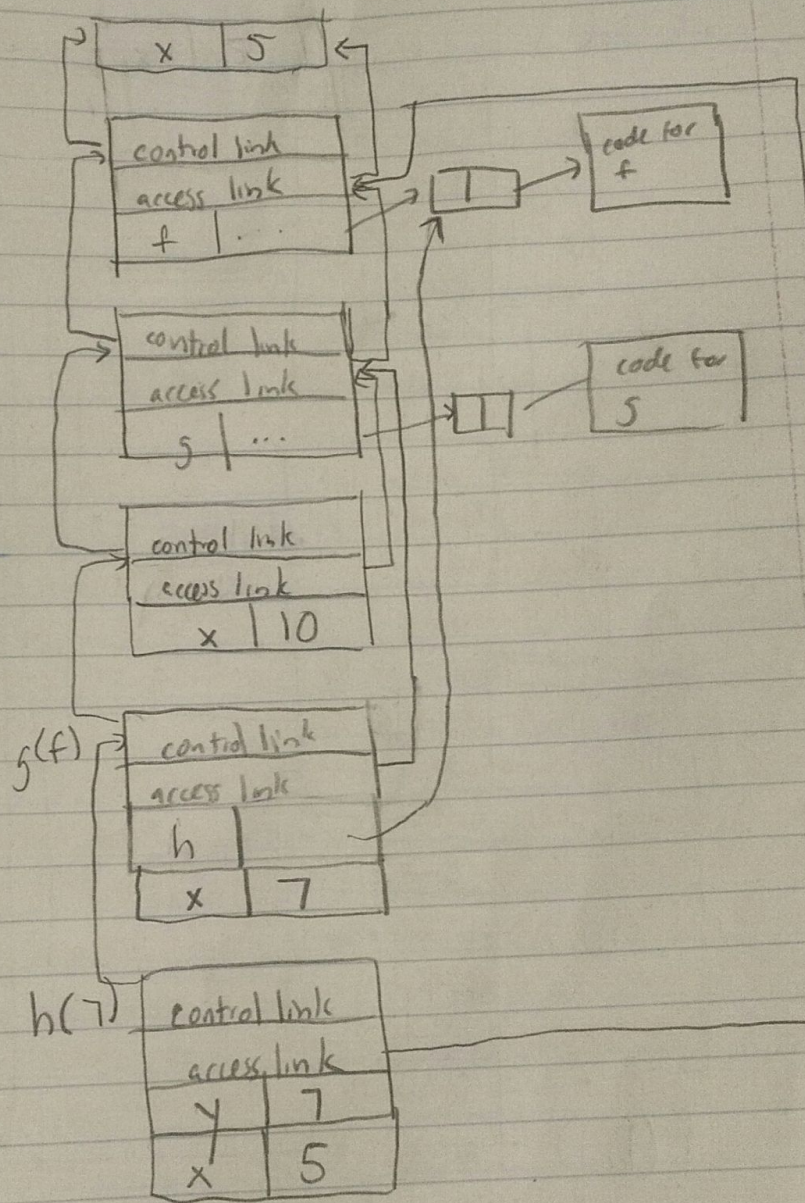 x 5
control link
access link
f ..
code for
f
control link
access link
g ...
code for
g
control link
access link
x 10
g(f)
control link
access link
h
x 7
h(7)
control link
access link
y 7
x 5